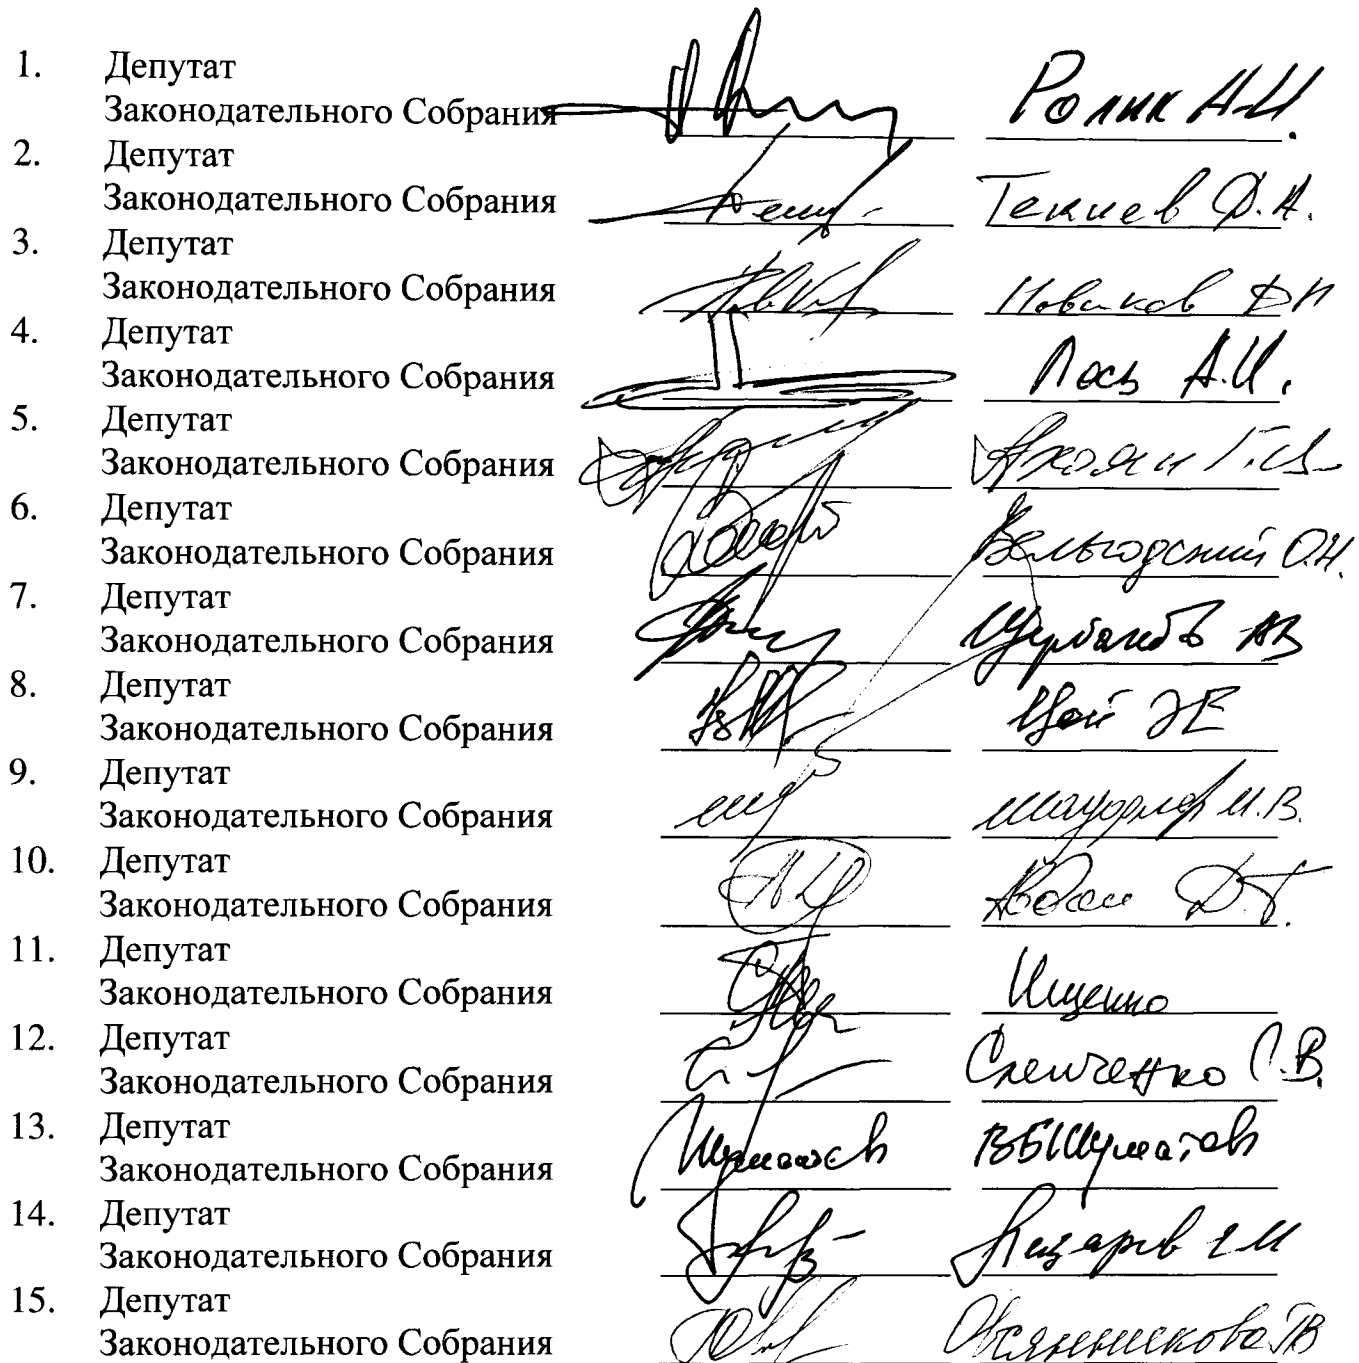 1. Депутат
Законодательного Собрания Ролик А.И.
2. Депутат
Законодательного Собрания Текиев Д.А.
3. Депутат
Законодательного Собрания Новиков ДН
4. Депутат
Законодательного Собрания Лось А.И.
5. Депутат
Законодательного Собрания Ахоян
6. Депутат
Законодательного Собрания О.Н.
7. Депутат
Законодательного Собрания АВ
8. Депутат
Законодательного Собрания Цой ЭЕ
9. Депутат
Законодательного Собрания
10. Депутат
Законодательного Собрания
11. Депутат
Законодательного Собрания Ищенко
12. Депутат
Законодательного Собрания Слепченко С.В.
13. Депутат
Законодательного Собрания ВБ Шуматов
14. Депутат
Законодательного Собрания
15. Депутат
Законодательного Собрания Овсянникова ТВ